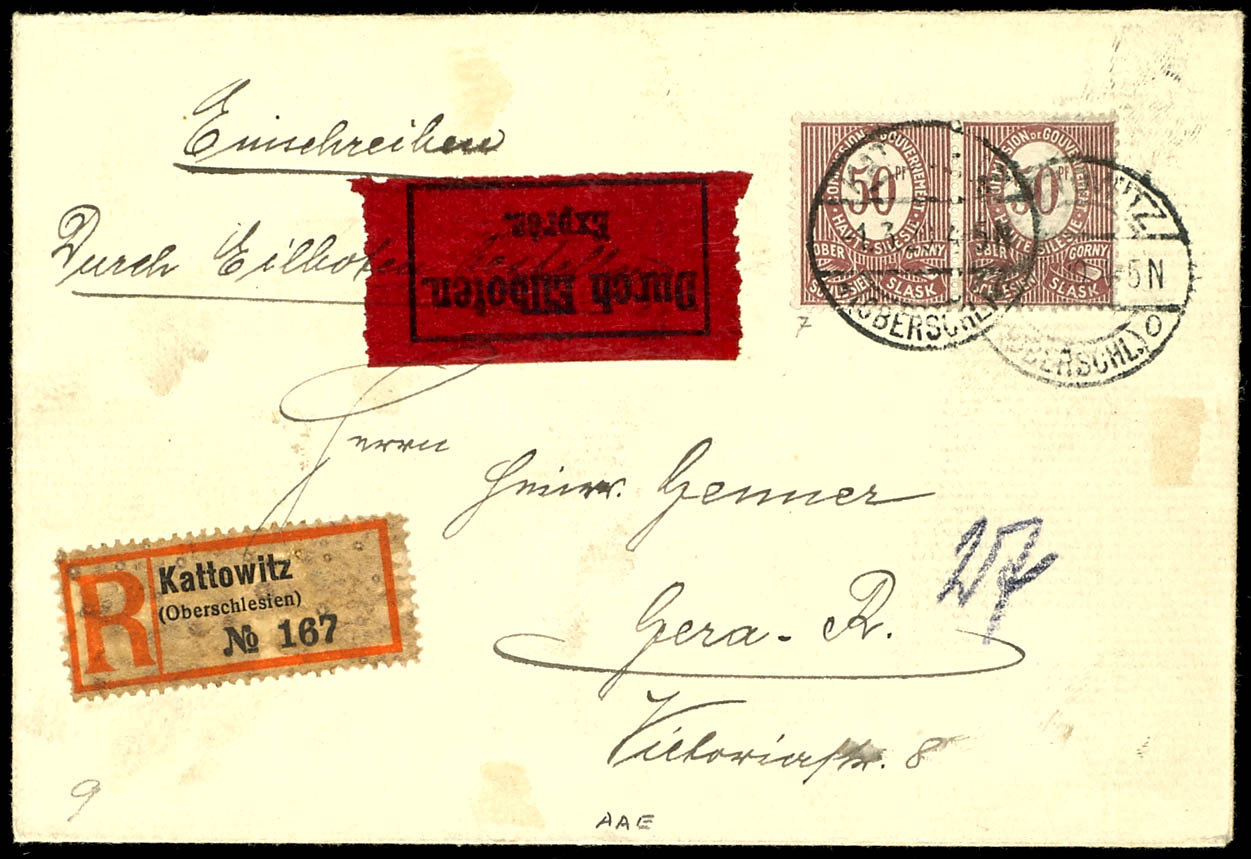 Einschreiben
Durch Eilboten
Durch Eilboten.
Exprès.
COMMISSION DE GOUVERNEMENT
50 PF
HAUTE SILESIE
OBER GORNY
SCHLESIEN SLASK
COMMISSION DE GOUVERNEMENT
50 PF
HAUTE SILESIE
OBER GORNY
SCHLESIEN SLASK
4-5N
(OBERSCHL.)
4-5N
(OBERSCHL.)
7
Herrn
Heinr. Genner
Gera - R.
Victoriastr. 8
R
Kattowitz
(Oberschlesien)
№ 167
9
AAE